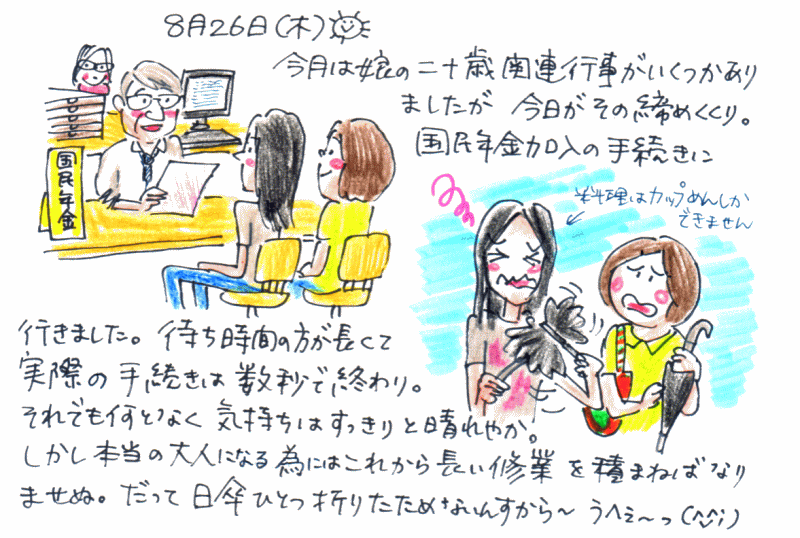 8月26日(木)
今月は娘の二十歳関連行事がいくつかあり
ましたが 今日がその締めくくり。
国民年金加入の手続きに
国民年金
料理はカップめんしか
できません
行きました。待ち時間の方が長くて
実際の手続きは数秒で終わり。
それでも何となく気持ちはすっきりと晴れやか。
しかし本当の大人になる為にはこれから長い修業を積まねばなり
ませぬ。だって日傘ひとつ折りたためないんすから〜 うへぇ〜っ(^^;)